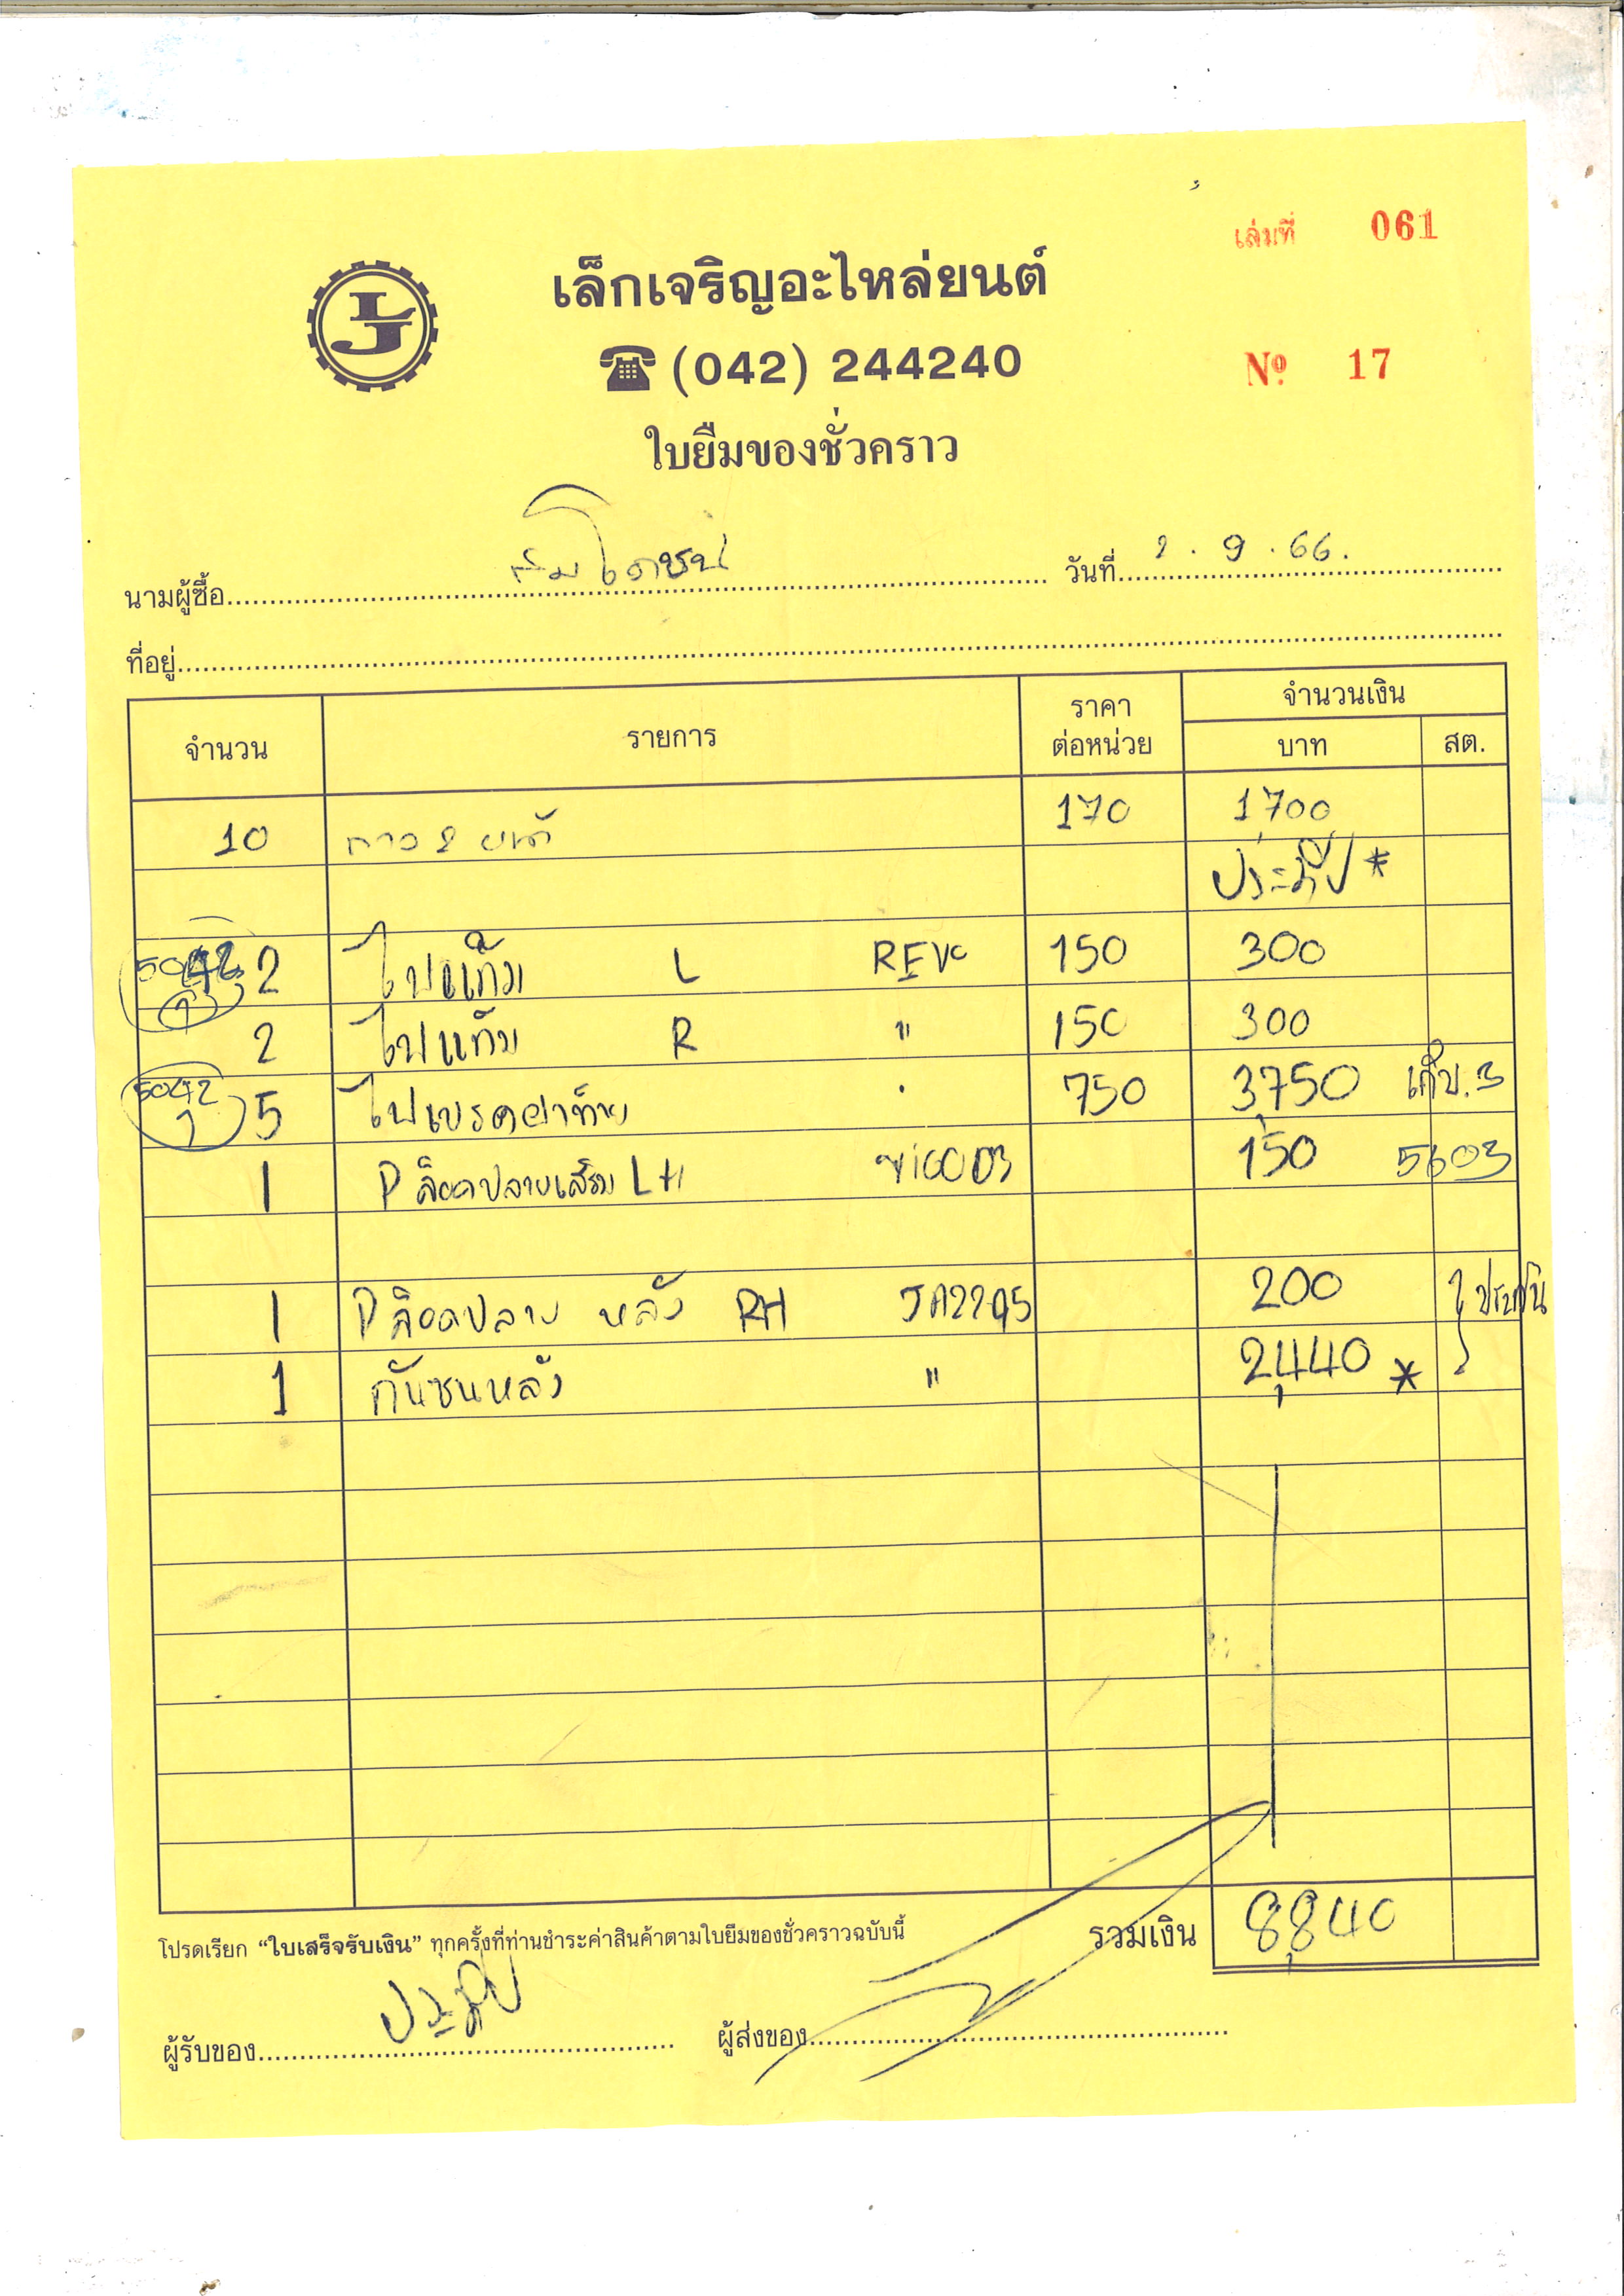 เล่มที่ 061
LJ
เล็กเจริญอะไหล่ยนต์
(042) 244240
Nº 17
ใบยืมของชั่วคราว
นามผู้ซื้อ วันที่ 2.9.66.
ที่อยู่
จำนวน รายการ ราคาต่อหน่วย จำนวนเงิน
บาท สต.
10 กาว 2 170 1700
ประทีป *
2 ไฟแก้ม L REVO 150 300
2 ไฟแก้ม R " 150 300
5042 1 5 ไฟเบรคฝาท้าย 750 3,750 เก็บ.3
1 ปลาย LH 150 5603
1 ปลาย หลัง RH 200
1 กันชนหลัง " 2,440 *
รวมเงิน 8,840
โปรดเรียก “ใบเสร็จรับเงิน” ทุกครั้งที่ท่านชำระค่าสินค้าตามใบยืมของชั่วคราวฉบับนี้
ผู้รับของ ประทีป ผู้ส่งของ